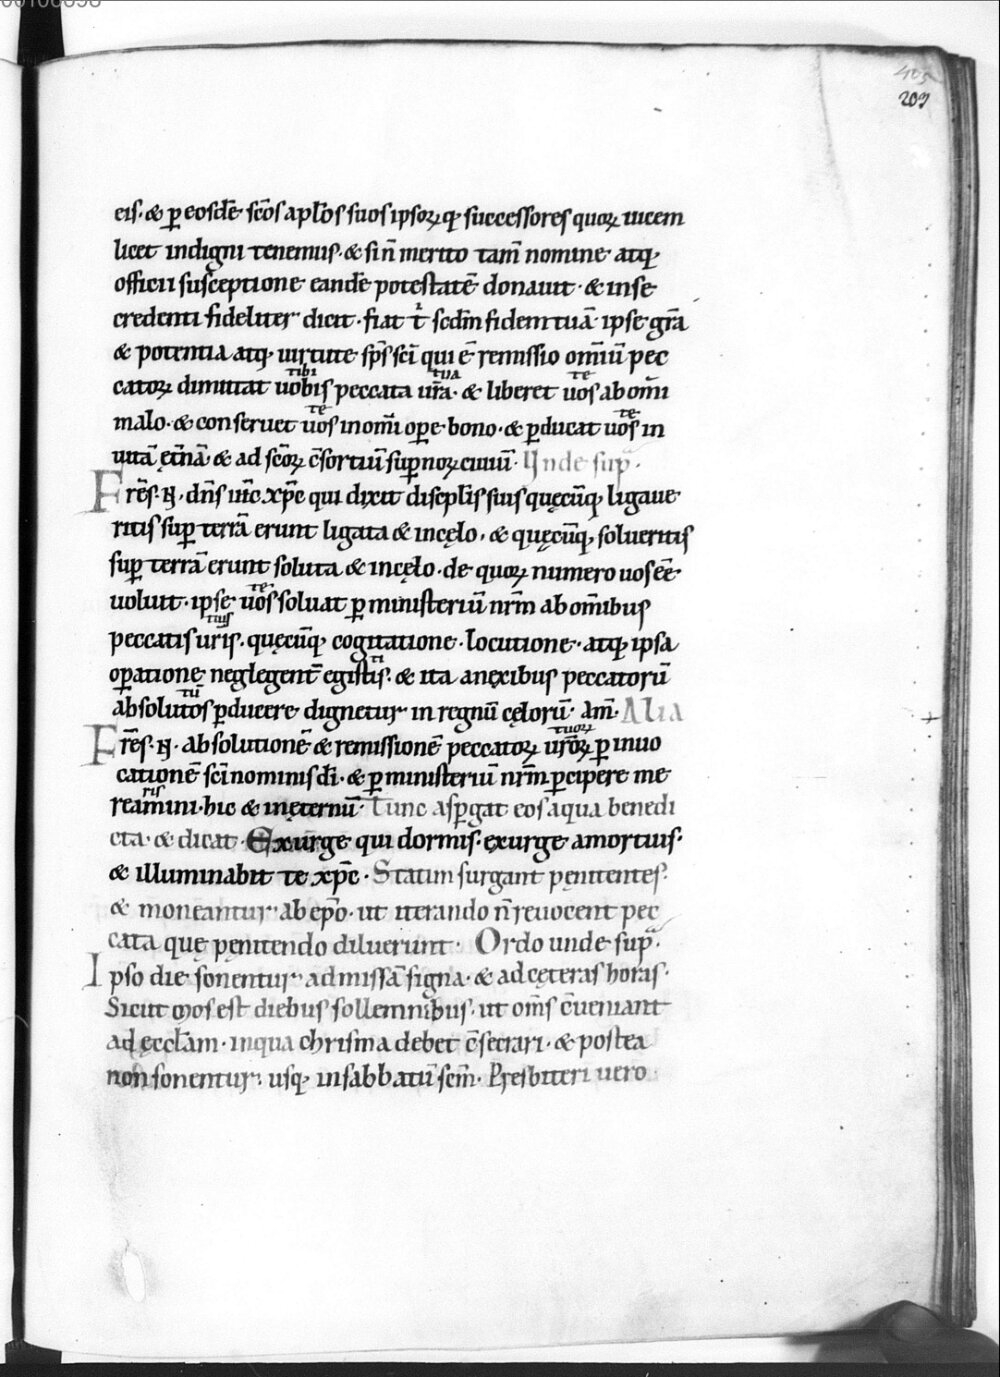 405
209
eis· & ꝑ eosdē sc̄os apl̄os suos ipsoꝝ q; successores quoꝝ uicem
licet indigni tenemus· & sin̄ merito tam̄ nomine atq;
officii susceptione eandē potestatē donauit· & in se
credenti fideliter dicit· fiat t̄ scd̄m fidem tuā· ipse gr̄a
& potentia atq; uirtute sp̄s sc̄i qui ē remissio om̄iū pec
tibi tua te
catoꝝ dimittat uobis peccata ur̄a· & liberet uos ab om̄i
te te
malo· & conseruet uos in om̄i oꝑe bono· & ꝑducat uos in
uitā ęt̄nā & ad sc̄oꝝ c̄sortiū suꝑnoꝝ ciuiū· Unde supᵃ·
Frēs· ꝶ· dn̄s ih̄c xp̄c qui dixit discipl̄is suis quęcūq; ligaue
ritis suꝑ terrā erunt ligata & in cęlo· & quęcūq; solueritis
suꝑ terrā erunt soluta & in cęlo· de quoꝝ numero uos eē
te
uoluit· ipse uos soluat ꝑ ministeriū nr̄m ab om̄ibus
tuis
peccatis ur̄is· quęcūq; cogitatione· locutione· atq; ipsa
ti
oꝑatione neglegent̄ egistis· & ita a nexibus peccatorū
tū
absolutos ꝑducere dignetur in regnū cęlorū· am̄· Alia
tuoꝝ
Frēs· ꝶ· absolutionē & remissionē peccatoꝝ ur̄oꝝ ꝑ inuo
cationē sc̄i nominis dī· & ꝑ ministeriū nr̄m ꝑcipere me
ris
reamini· hic & in ęternū· Tunc asꝑgat eos aqua benedi
cta· & dicat· Exurge qui dormis· exurge a mortuis·
& illuminabit te xp̄c· Statim surgant pęnitentes·
& moneantur ab ep̄o· ut iterando n̄ reuocent pec
cata quę pęnitendo diluerunt· Ordo unde supᵃ·
Ipso die sonentur ad missā signa· & ad cęteras horas·
Sicut mos est diebus sollemnibus· ut om̄s c̄ueniant
ad ęccl̄am· in qua chrisma debet c̄secrari· & postea
non sonentur· usq; in sabbatū sc̄m· Presbiteri uero